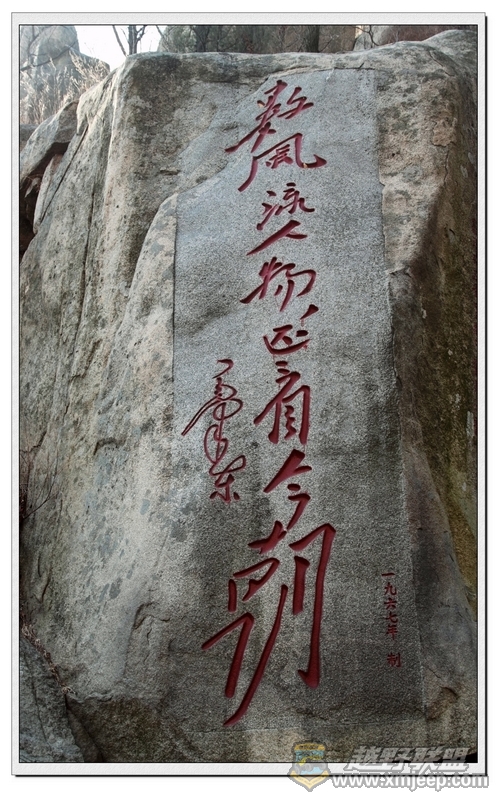 数风流人物还看今朝
毛泽东
一九六七年 制
越野联盟
www.xmjeep.com